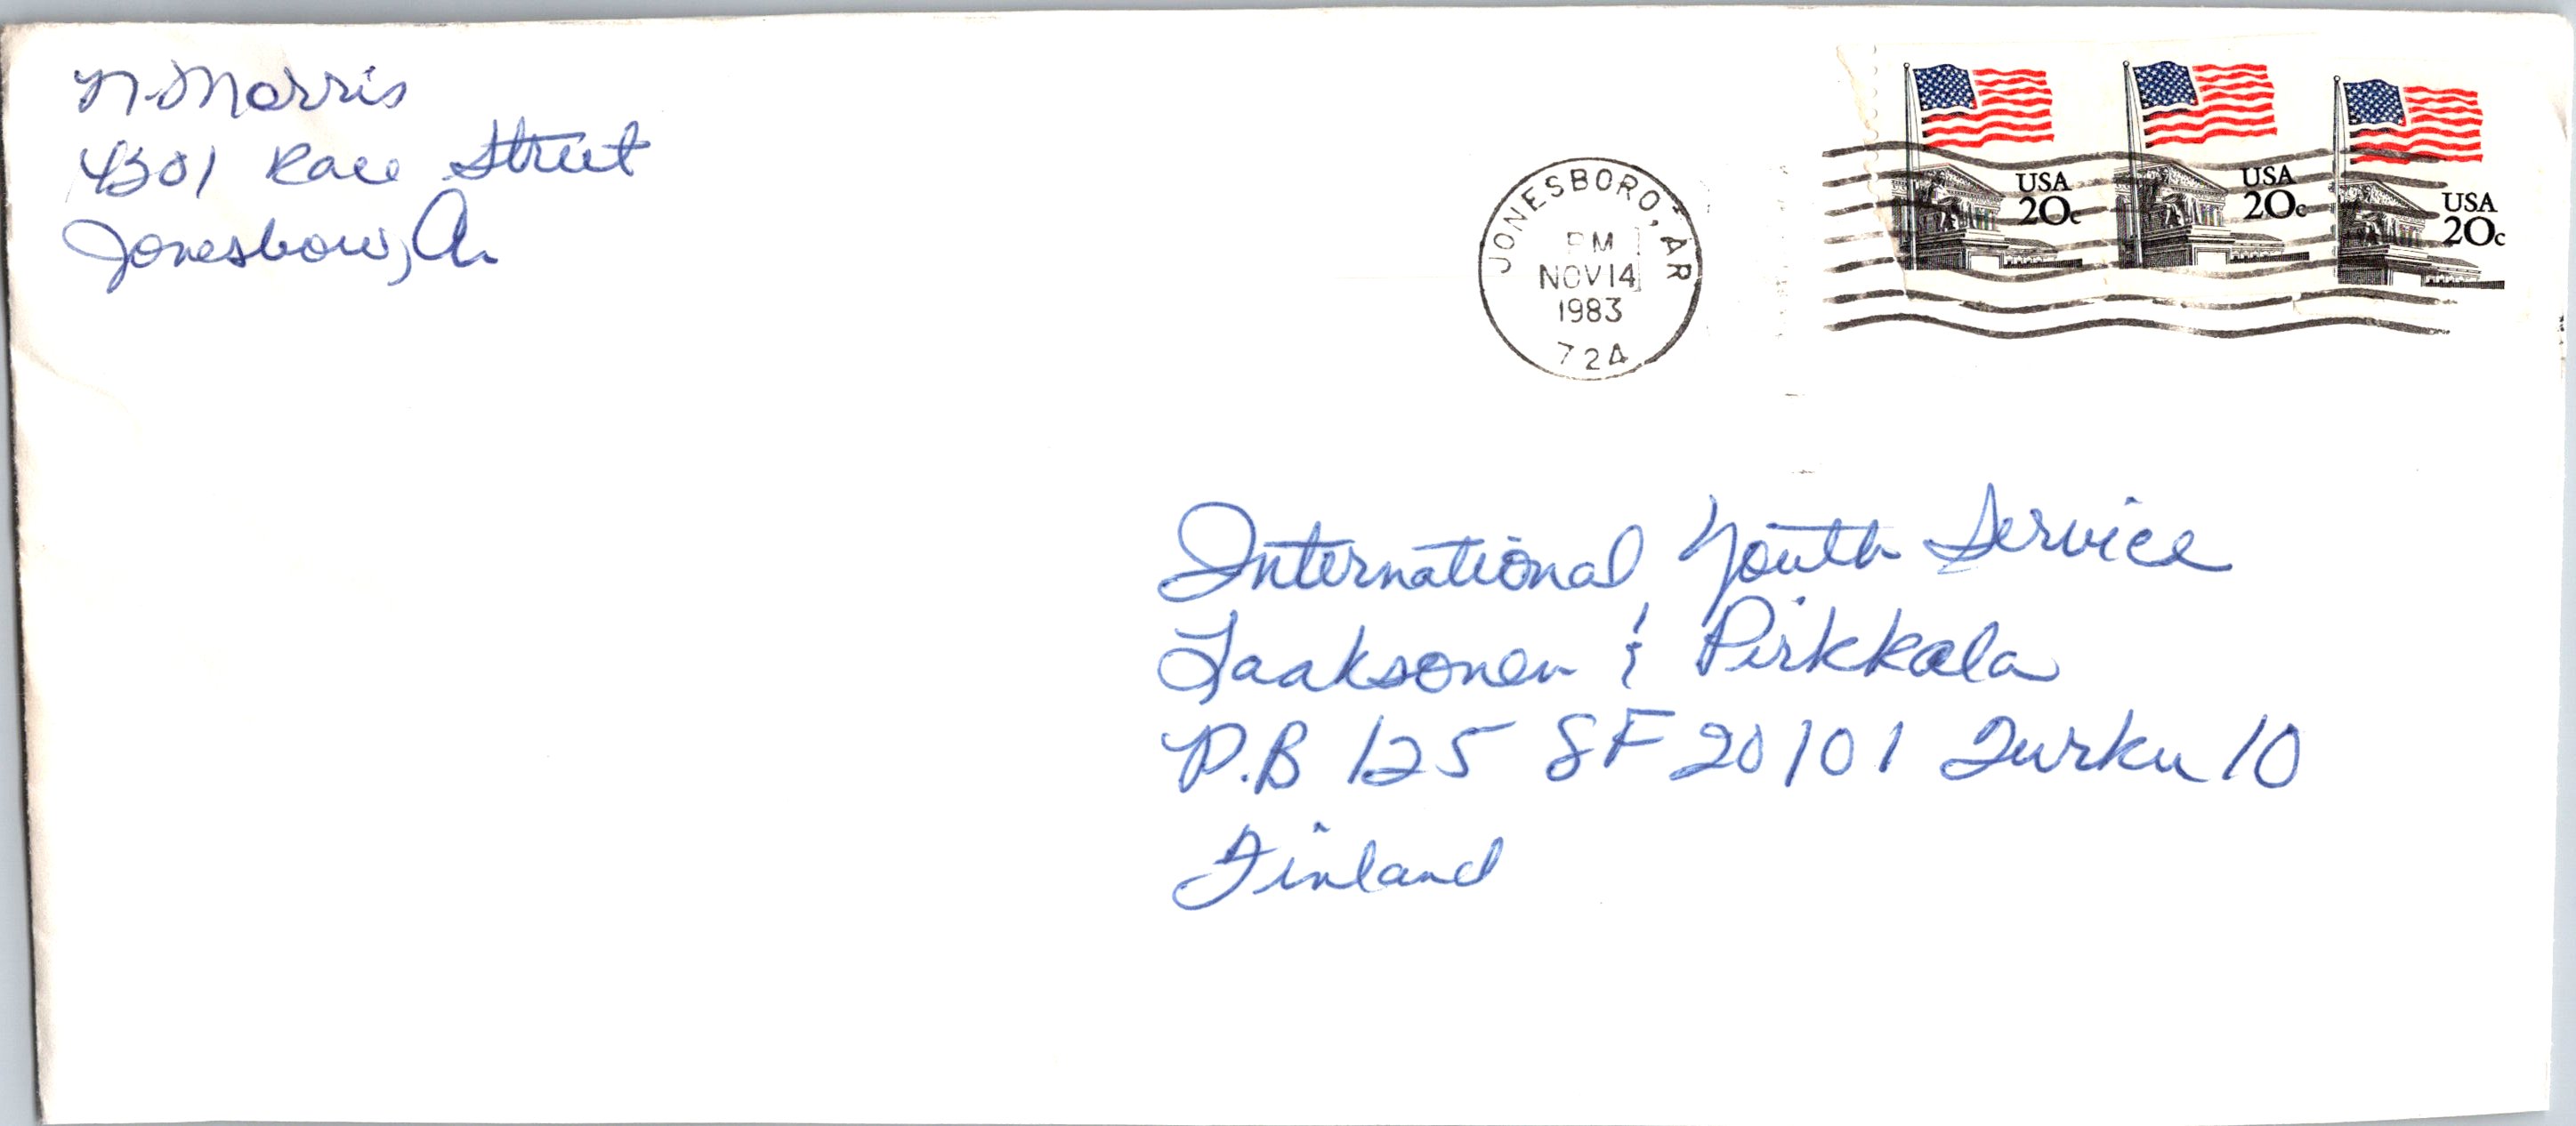 N. Morris
4301 Race Street
Jonesboro, Ar.
JONESBORO, AR
PM
NOV 14
1983
724
USA
20c
USA
20c
USA
20c
International Youth Service
Laaksonen & Pirkkala
P.B 125 SF 20101 Turku 10
Finland